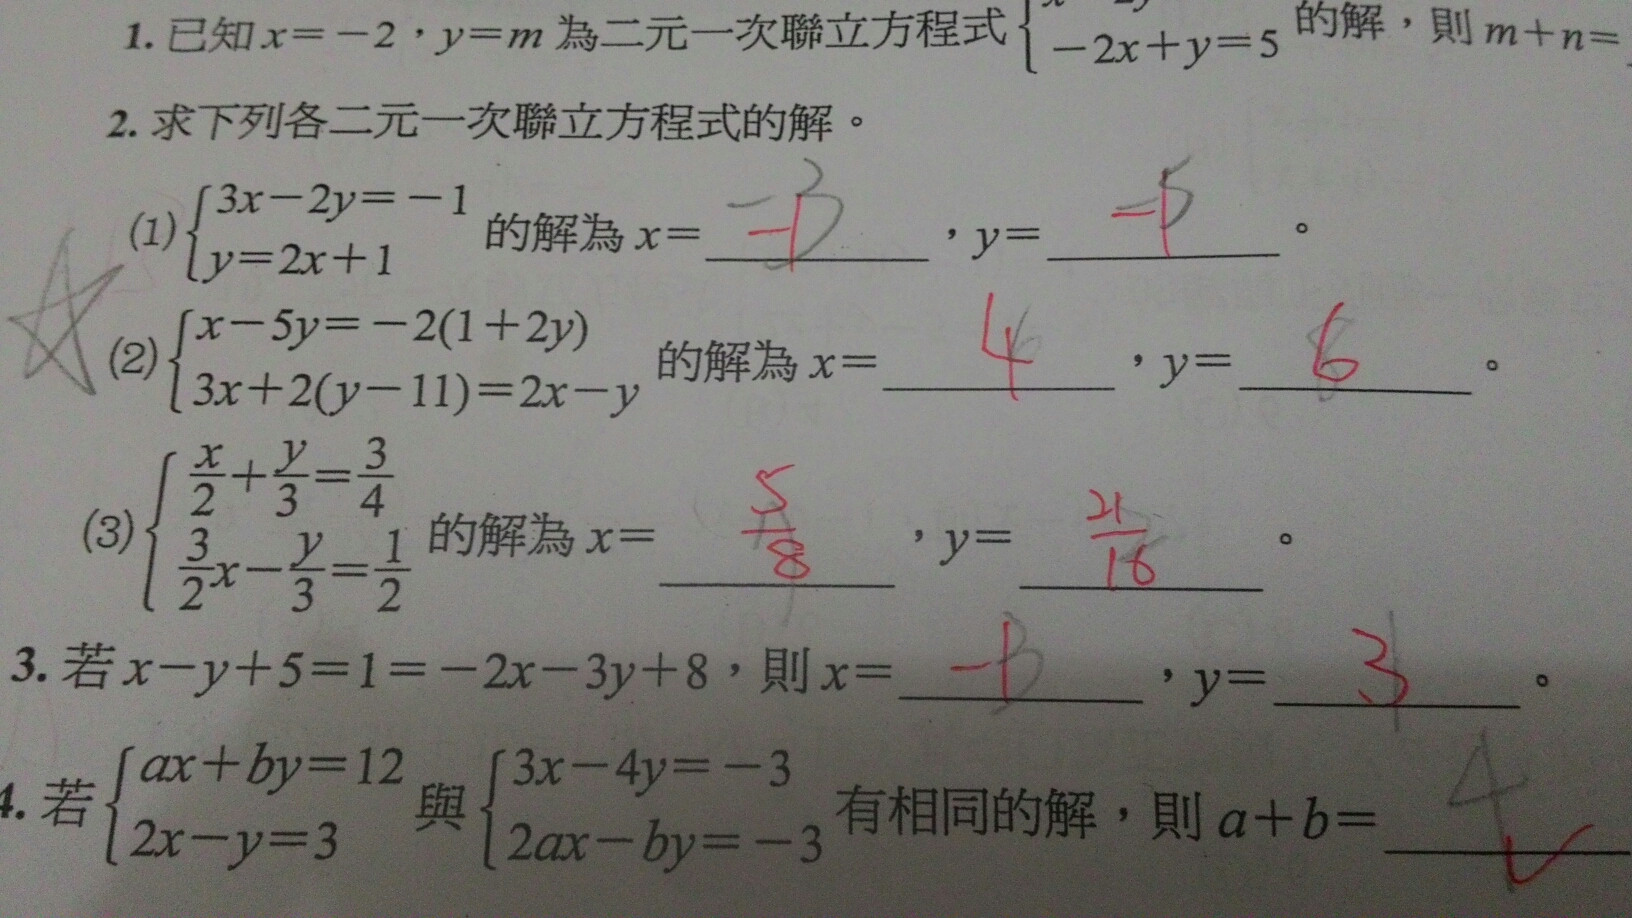 1. 已知 x=-2，y=m 為二元一次聯立方程式 { -2x+y=5 的解，則 m+n=
2. 求下列各二元一次聯立方程式的解。
(1) { 3x-2y=-1
y=2x+1 的解為 x= -1 ，y= -1 。
(2) { x-5y=-2(1+2y)
3x+2(y-11)=2x-y 的解為 x= 4 ，y= 6 。
(3) { x/2+y/3=3/4
3/2x-y/3=1/2 的解為 x= 5/8 ，y= 21/16 。
3. 若 x-y+5=1=-2x-3y+8，則 x= -1 ，y= 3 。
4. 若 { ax+by=12
2x-y=3 與 { 3x-4y=-3
2ax-by=-3 有相同的解，則 a+b= 4